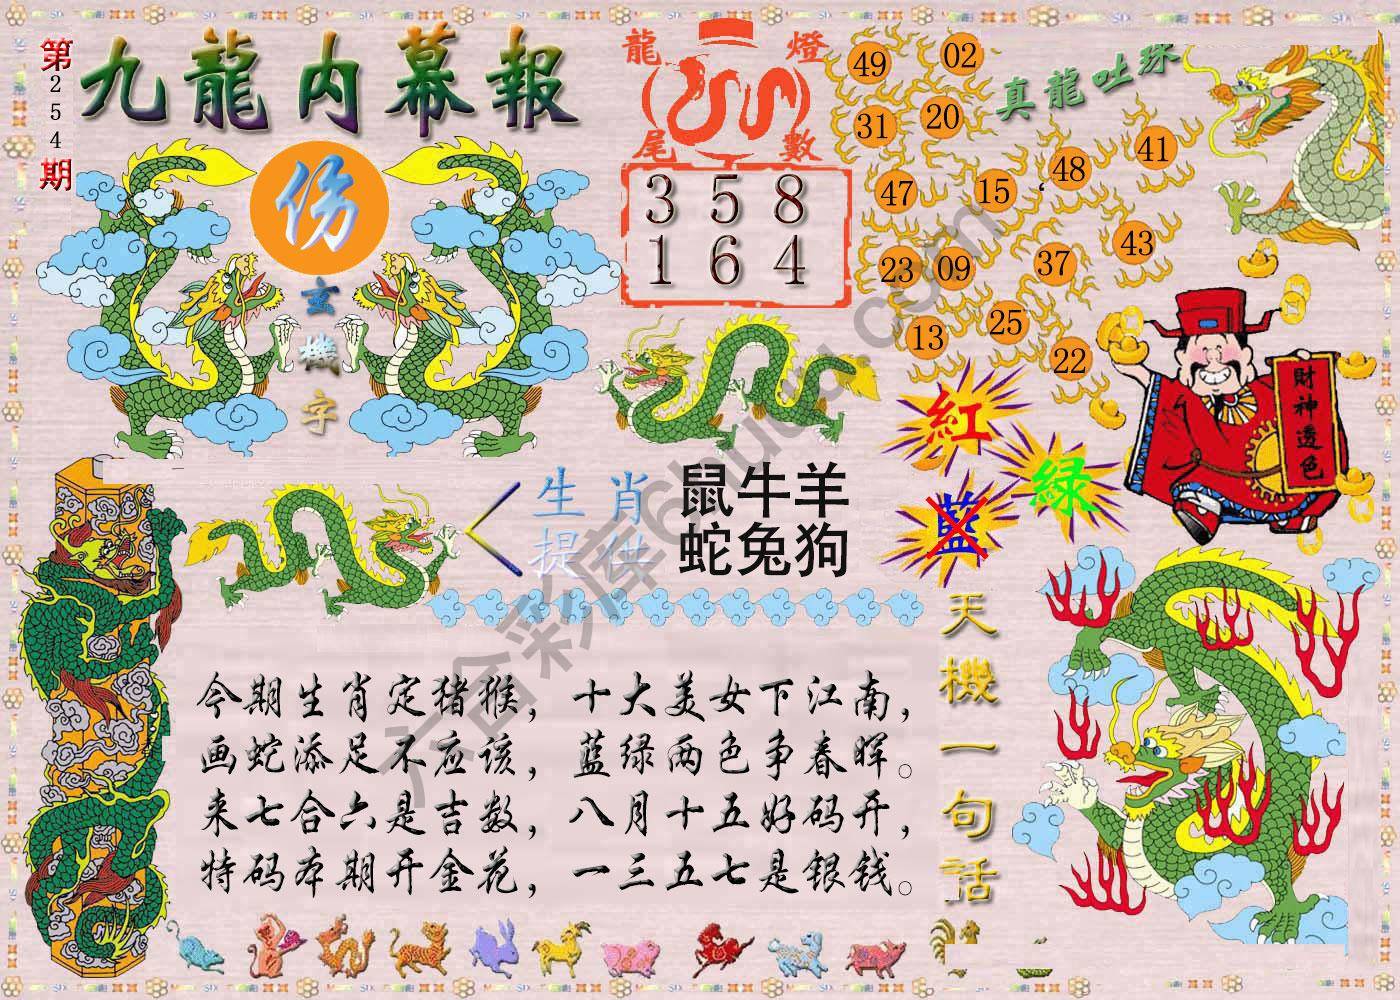 第254期
九龍內幕報
伤
玄機字
龍燈尾數
3 5 8
1 6 4
真龍吐珠
49 02
31 20
47 15 48 41
23 09 37 43
13 25 22
財神透色
紅
綠
藍
生肖提供
鼠牛羊
蛇兔狗
天機一句話
今期生肖定猪猴，十大美女下江南，
画蛇添足不应该，蓝绿两色争春晖。
来七合六是吉数，八月十五好码开，
特码本期开金花，一三五七是银钱。
六合彩库6huuu.com